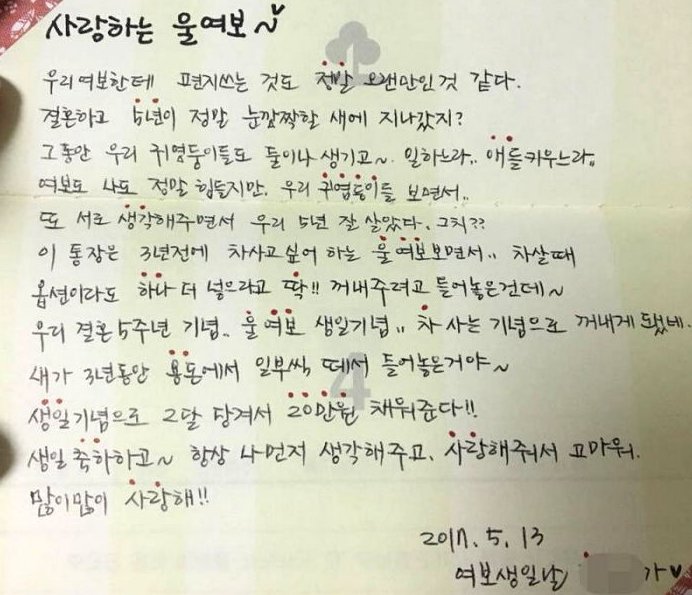 사랑하는 울여보~♥
우리여보한테 편지쓰는 것도 정말 오랜만인것 같다.
결혼하고 5년이 정말 눈깜짝할 새에 지나갔지?
그동안 우리 귀염둥이들도 둘이나 생기고~ 일하느라.. 애들키우느라..
여보도 나도 정말 힘들지만, 우리 귀염둥이들 보면서..
또 서로 생각해주면서 우리 5년 잘 살았다. 그치??
이 통장은 3년전에 차사고싶어 하는 울여보보면서.. 차살때
옵션이라도 하나 더 넣으라고 딱!! 꺼내주려고 들어놓은건데~
우리 결혼5주년 기념.. 울여보 생일기념.. 차 사는 기념으로 꺼내게 됐네.
새가 3년동안 용돈에서 일부씩 떼서 들어놓은거야~
4
생일기념으로 2달 당겨서 20만원 채워준다!!
생일 축하하고~ 항상 나먼저 생각해주고, 사랑해줘서 고마워.
많이많이 사랑해!!
2017. 5. 13
여보생일날
가♥